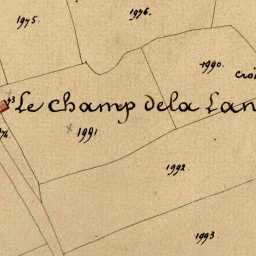 1975.
1976.
1990.
Le Champ de la Lan
1991
1992
1993